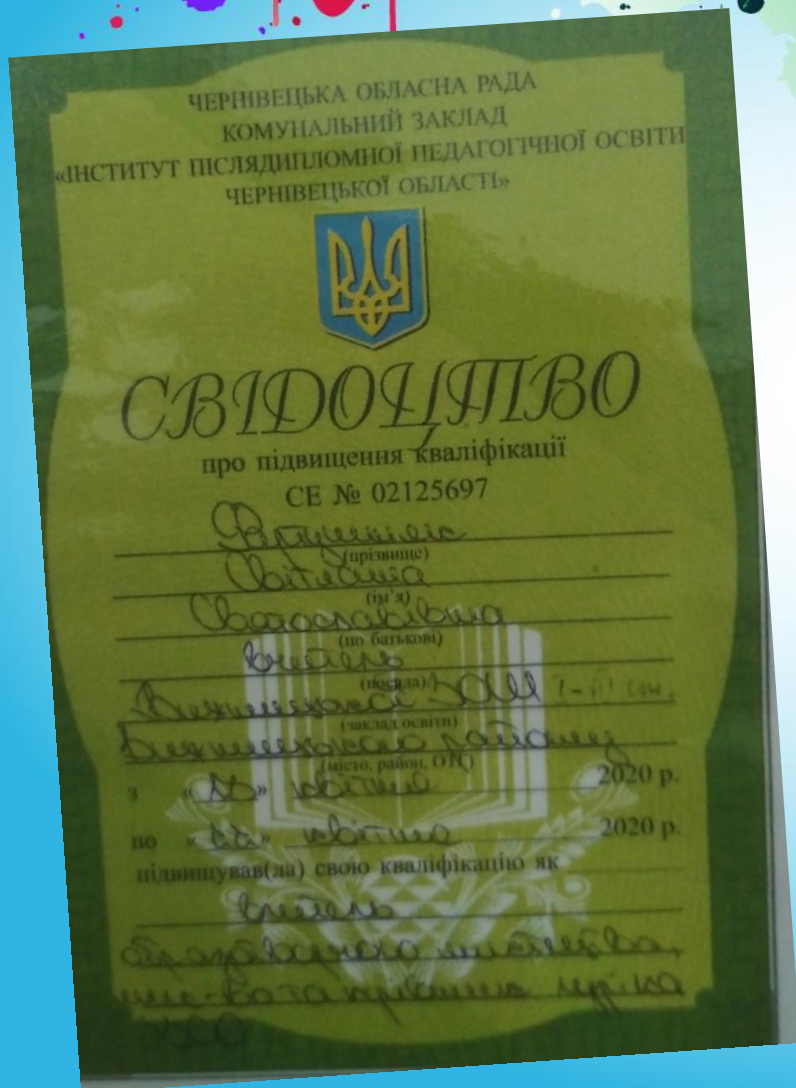 ЧЕРНІВЕЦЬКА ОБЛАСНА РАДА
КОМУНАЛЬНИЙ ЗАКЛАД
«ІНСТИТУТ ПІСЛЯДИПЛОМНОЇ ПЕДАГОГІЧНОЇ ОСВІТИ
ЧЕРНІВЕЦЬКОЇ ОБЛАСТІ»
СВІДОЦТВО
про підвищення кваліфікації
СЕ № 02125697
(прізвище)
Світлана
(ім'я)
Святославівна
(по батькові)
вчитель
(посада)
Вижницької ЗОШ І-ІІІ ст.
(заклад освіти)
Вижницького району
(місто, район, ОТГ)
з квітня 2020 р.
по квітня 2020 р.
підвищував(ла) свою кваліфікацію як
вчитель
образотворчого мистецтва,